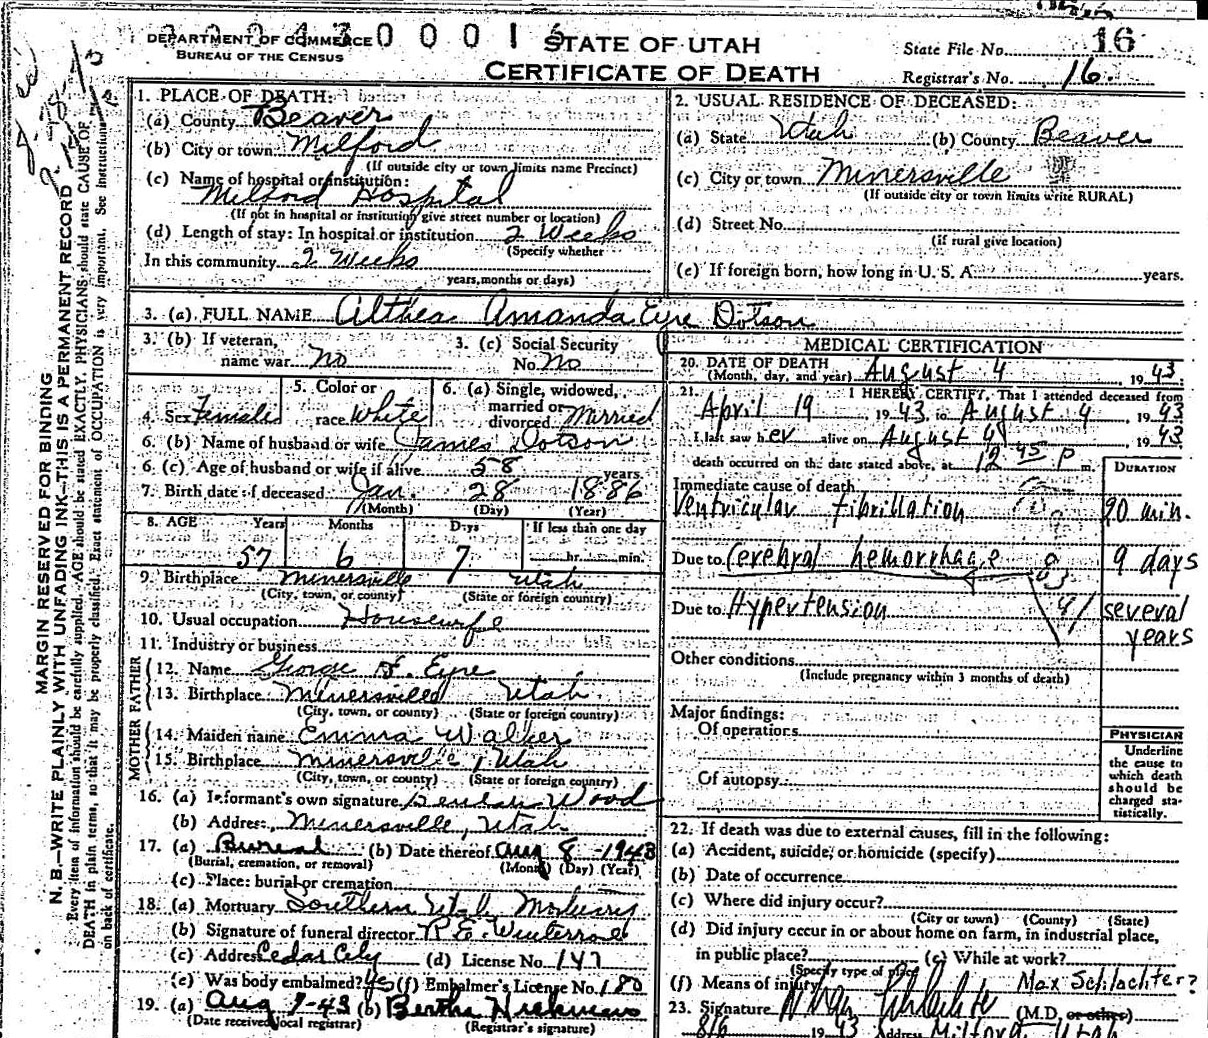 DEPARTMENT OF COMMERCE
BUREAU OF THE CENSUS
STATE OF UTAH
CERTIFICATE OF DEATH
State File No. 16
Registrar's No. 16.
MARGIN RESERVED FOR BINDING
N. B.—WRITE PLAINLY WITH UNFADING INK—THIS IS A PERMANENT RECORD
Every item of information should be carefully supplied. AGE should be stated EXACTLY. PHYSICIANS should state CAUSE OF
DEATH in plain terms, so that it may be properly classified. Exact statement of OCCUPATION is very important. See instructions
on back of certificate.
1. PLACE OF DEATH:
(a) County Beaver
(b) City or town Milford
(If outside city or town limits name Precinct)
(c) Name of hospital or institution:
Milford Hospital
(If not in hospital or institution give street number or location)
(d) Length of stay: In hospital or institution 2 Weeks
(Specify whether
In this community 2 Weeks
years, months or days)
2. USUAL RESIDENCE OF DECEASED:
(a) State Utah (b) County Beaver
(c) City or town Minersville
(If outside city or town limits write RURAL)
(d) Street No.
(if rural give location)
(e) If foreign born, how long in U. S. A. years.
3. (a) FULL NAME Althea Amanda Eyre Dotson
3. (b) If veteran,
name war No
3. (c) Social Security
No. No
4. Sex Female
5. Color or
race White
6. (a) Single, widowed,
married or
divorced Married
6. (b) Name of husband or wife James Dotson
6. (c) Age of husband or wife if alive 58 years
7. Birth date of deceased Jan. 28 1886
(Month) (Day) (Year)
8. AGE Years Months Days If less than one day
57 6 7 hr. min.
9. Birthplace Minersville Utah
(City, town, or county) (State or foreign country)
10. Usual occupation Housewife
11. Industry or business
FATHER
12. Name George F. Eyre
13. Birthplace Minersville Utah.
(City, town, or county) (State or foreign country)
MOTHER
14. Maiden name Emma Walker
15. Birthplace Minersville, Utah
(City, town, or county) (State or foreign country)
16. (a) Informant's own signature Beulah Wood
(b) Address Minersville, Utah
17. (a) Burial (b) Date thereof Aug 8 -1943
(Burial, cremation, or removal) (Month) (Day) (Year)
(c) Place: burial or cremation
18. (a) Mortuary Southern Utah Mortuary
(b) Signature of funeral director
(c) Address Cedar City (d) License No. 147
(e) Was body embalmed? Yes (f) Embalmer's License No. 180
19. (a) Aug 9-43 (b) Bertha
(Date received local registrar) (Registrar's signature)
MEDICAL CERTIFICATION
20. DATE OF DEATH
(Month, day, and year) August 4, 1943.
21. I HEREBY CERTIFY, That I attended deceased from
April 19, 1943, to August 4, 1943
I last saw her alive on August 4, 1943
death occurred on the date stated above, at 12 45 P m.
DURATION
Immediate cause of death
Ventricular fibrillation 20 min.
Due to Cerebral hemorrhage 9 days
Due to Hypertension several
years
Other conditions
(Include pregnancy within 3 months of death)
Major findings:
Of operations
Of autopsy
PHYSICIAN
Underline
the cause to
which death
should be
charged sta-
tistically.
22. If death was due to external causes, fill in the following:
(a) Accident, suicide, or homicide (specify)
(b) Date of occurrence
(c) Where did injury occur?
(City or town) (County) (State)
(d) Did injury occur in or about home on farm, in industrial place,
in public place? (e) While at work?
(Specify type of place)
(f) Means of injury Max Schlachter?
23. Signature (M.D. or other)
8/6 1943 Address Milford, Utah